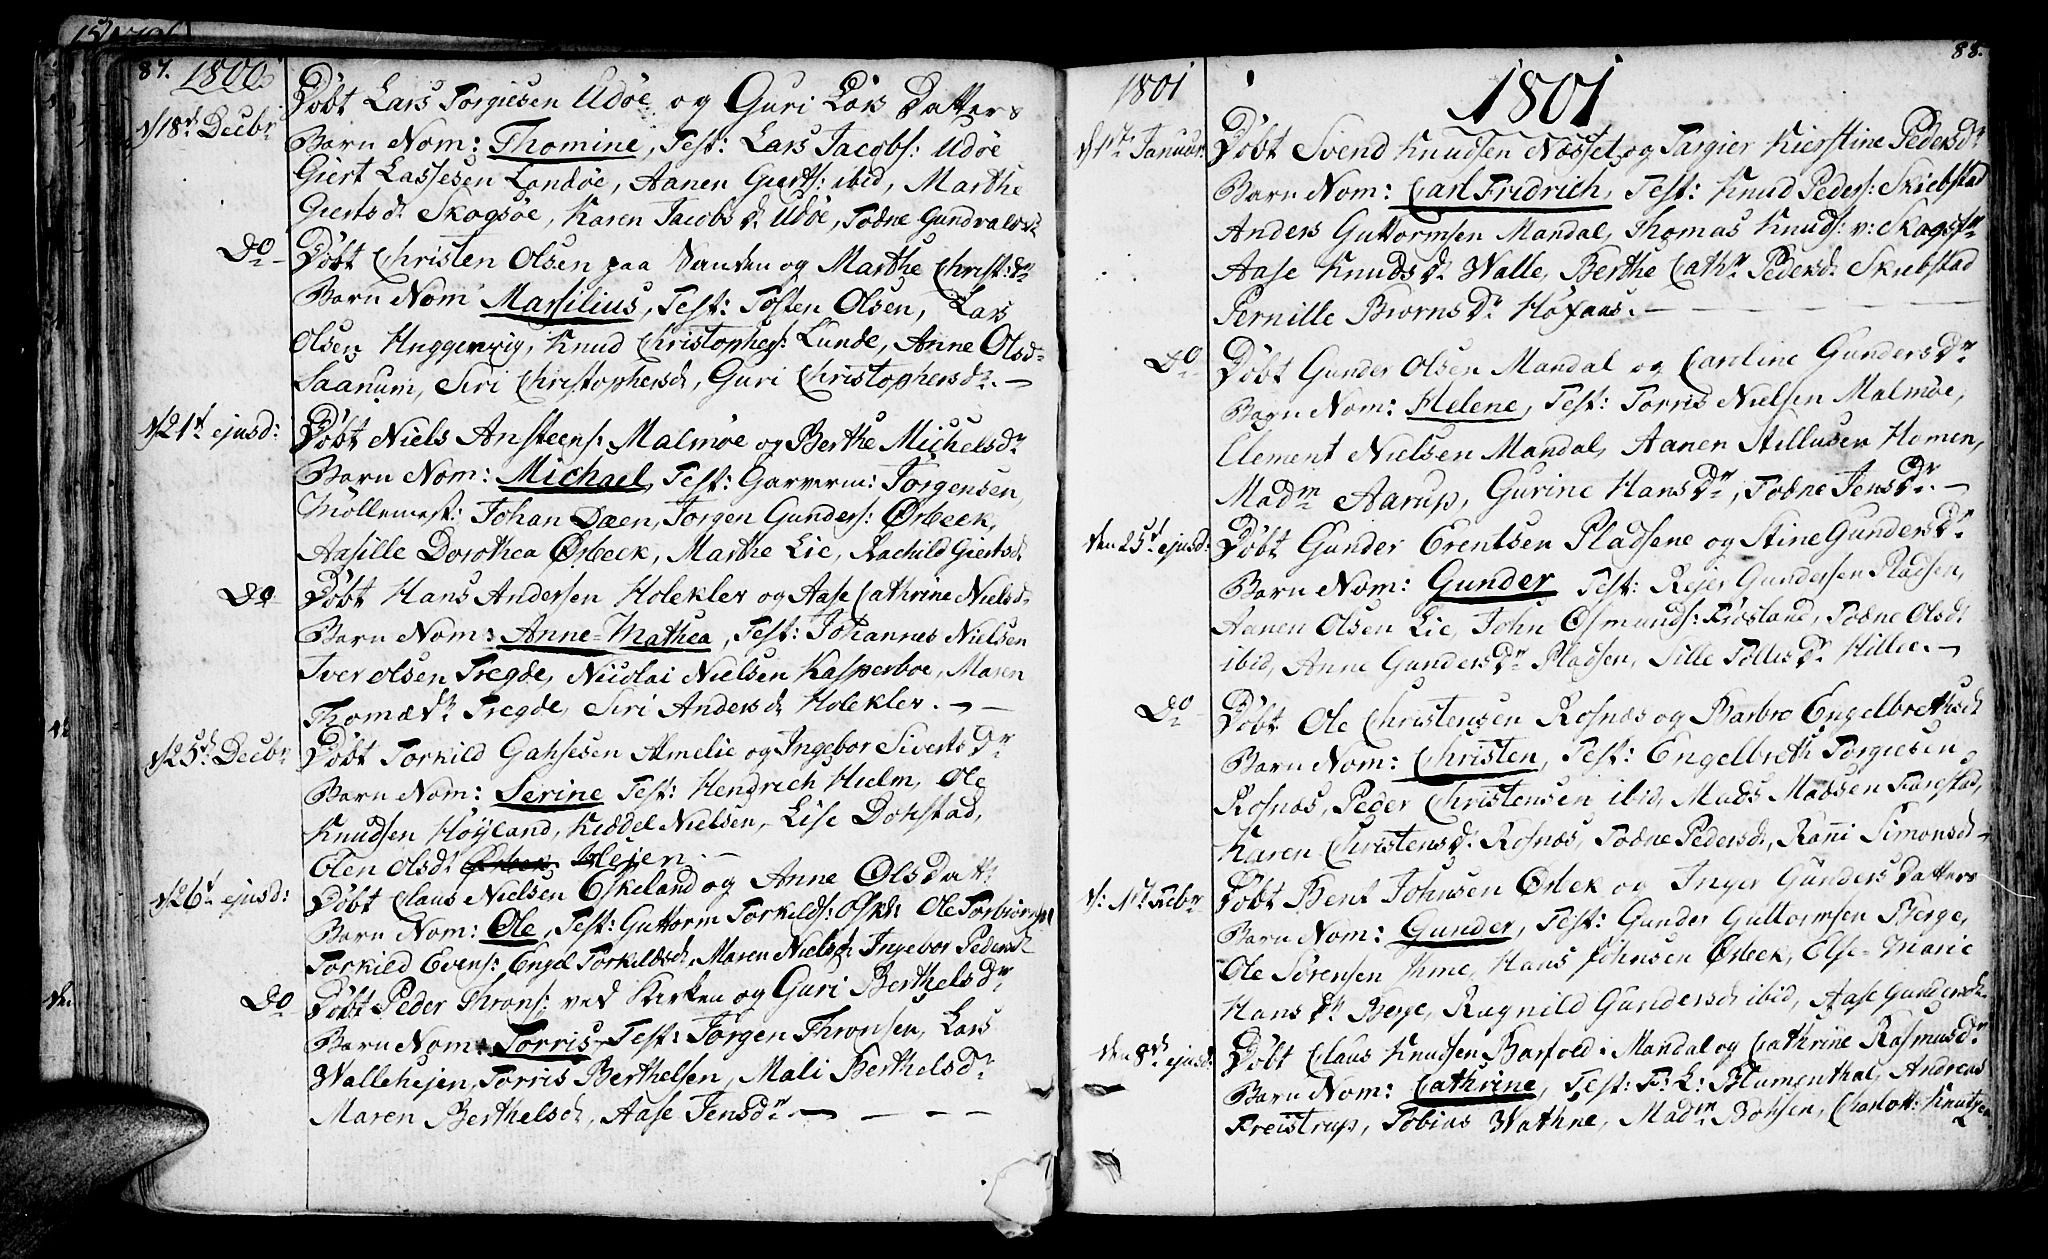 87. 1800.
d 18de Decbr Döbt Lars Torgiesen Udöe og Guri Lars Datters
Barn Nom: Thomine, Test: Lars Jacobs: Udöe
Giert Lassesen Landöe, Aanen Gierts: ibid, Marthe
Giertsdr Skogsöe, Karen Jacobs dr Udöe, Todne Gundvaldsdr
Do Döbt Christen Olsen paa Sanden og Marthe Christ: dr
Barn Nom Marsilius, Test: Tosten Olsen, Lars
Olsen Huggenvig, Knud Christophers: Lunde, Anne Olsd
Saanum, Siri Christophersdr, Guri Christophersdr. —
d 21de ejusd: Döbt Niels Ansteens: Malmöe og Berthe Michelsdr
Barn Nom: Michael, Test: Garverm: Jörgensen,
Möllemest: Johan Daen, Jörgen Gunders: Örbeck,
Aasille Dorothea Örbeck, Marthe Lie, Rachild Giertsdr
Do Döbt Hans Andersen Holekler og Aase Cathrine Nielsdr
Barn Nom: Anne=Mathea, Test: Johannes Nielsen
Iver Olsen Tregde, Nicolai Nielsen Kasperboe, Maren
Thomædr Tregde, Siri Andersdr Holekler. —
d 25de Decbr Döbt Torkild Gahsesen Amelie og Ingebor Siverts Dr
Barn Nom: Serine Test: Hendrich Hielm, Ole
Knudsen Höyland, Keddel Nielsen, Lise Dokstad,
Elen Olsdr Hejen. —
d 26de ejusd: Döbt Claus Nielsen Eskeland og Anne Olsdatt:
Barn Nom: Ole, Test: Guttorm Torkilds: Ole Torbiörns:
Torkild Evens: Engel Torkildsdr, Maren Nielsdr Ingebor Pedersdr
Do Döbt Peder Throns: ved Kirken og Guri Berthelsdr
Barn Nom: Torris Test: Jörgen Thronsen, Lars
Wallehejen, Torris Berthelsen, Mali Berthelsdr
Maren Berthelsdr, Aase Jensdr. —
88.
1801 1801
d 1ste Januar Döbt Svend Knudsen Næsset og Targier Kierstine Pedersdr
Barn Nom: Carl Fridrich, Test: Knud Peders: Skiebstad
Anders Guttormsen Mandal, Thomas Knuds: v:
Aase Knudsdr Walle, Berthe Cathr Pedersdr Skiebstad
Pernille Biörnsdr
Do Döbt Gunder Olsen Mandal og Caroline Gundersdr
Barn Nom: Helene, Test: Torris Nielsen Malmöe,
Clement Nielsen Mandal, Aanen Stillusen Homen,
Madm Aarup, Gurine Hansdr, Todne Jensdr. —
den 25de ejusd: Döbt Gunder Erentsen Pladsene og Stine Gundersdr
Barn Nom: Gunder Test: Rejer Gundersen Pladsen,
Aanen Olsen Lie, John Osmunds: Frösland, Todne Olsdr
ibid, Anne Gundersdr Pladsen, Sille Tollisdr Hille. —
Do Döbt Ole Christensen Rosnæs og Barbro Engelbrethsdr
Barn Nom: Christen, Test: Engelbreth Torgiesen
Rosnæs, Peder Christensen ibid, Mads Madsen Farestad,
Karen Christensdr Rosnæs, Todne Pedersdr, Ranni Simonsd
d: 1ste Febr Döbt Bent Johnsen Örbek og Inger Gunders Datters
Barn Nom: Gunder, Test: Gunder Guttormsen Berge,
Ole Sörensen Ihme, Hans Johnsen Örbeck, Else=Marie
Hans dr Berge, Ragnild Gundersdr ibid, Aase Gundersdr
den 8de ejusd: Döbt Claus Knudsen Barfod i Mandal og Cathrine Rasmusdr
Barn Nom: Cathrine, Test: F: L: Blumenthal, Andreas
Freistrup, Tobias Wathne, Madm Bohsen, Charlott: Knudsen